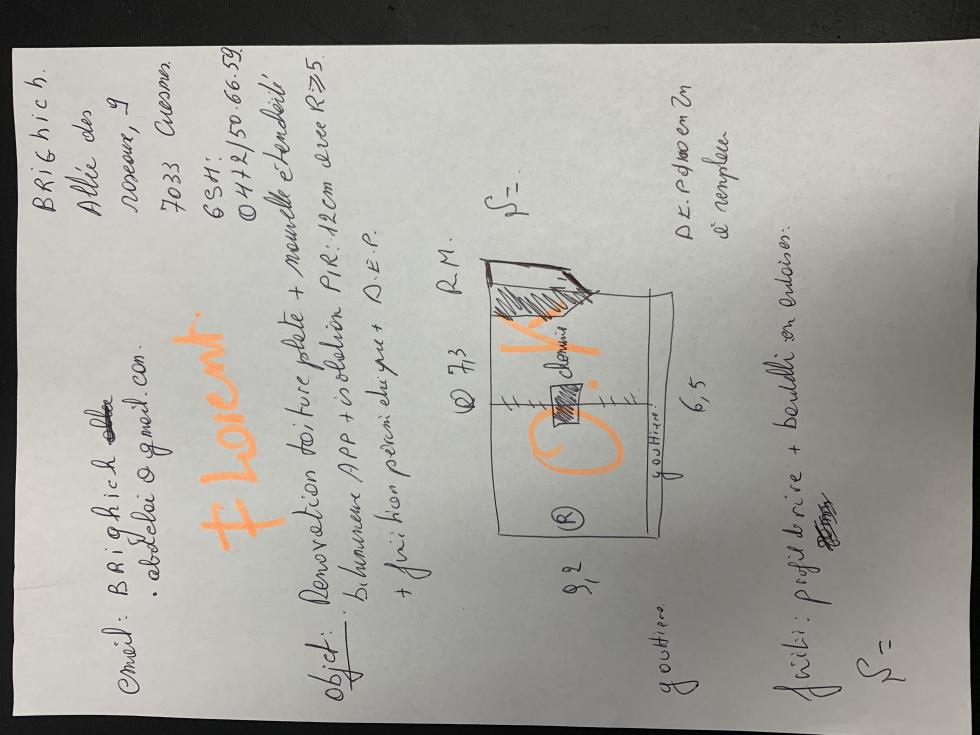 BRIGhich.
Allée des
roseaux, 9
7033 Cuesmes.
GSM:
0472/50.66.59.
email: BRighich
. abdelai @ gmail.com.
Florent.
Objet: Renovation toiture plate + nouvelle étanchéité
bitumineuse APP + isolation PIR: 12cm avec R⩾5.
+ finition périmétrique + D.E.P.
7,3 R.M.
S=.
O.K
cheminée
R
9,2
gouttière.
6,5
gouttière.
D.E.P Ø100 en Zn
à remplacer
finiti: profil de rive + bardelli en ardoises.
S=